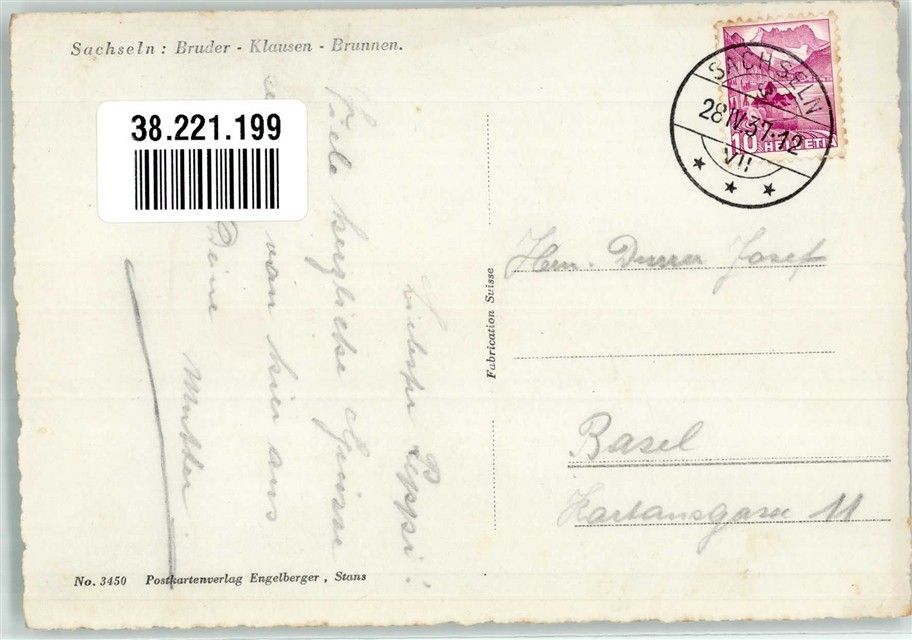 Sachseln : Bruder - Klausen - Brunnen.
38.221.199
SACHSELN
28 IV. 37.-12
VII
10 HELVETIA
Liebster Peppi!
Viele herzliche Grüsse
von hier aus
Deine Mutter
Fabrication Suisse
Herrn. Durrer Josef
Basel
Kartausgasse 11
No. 3450 Postkartenverlag Engelberger , Stans